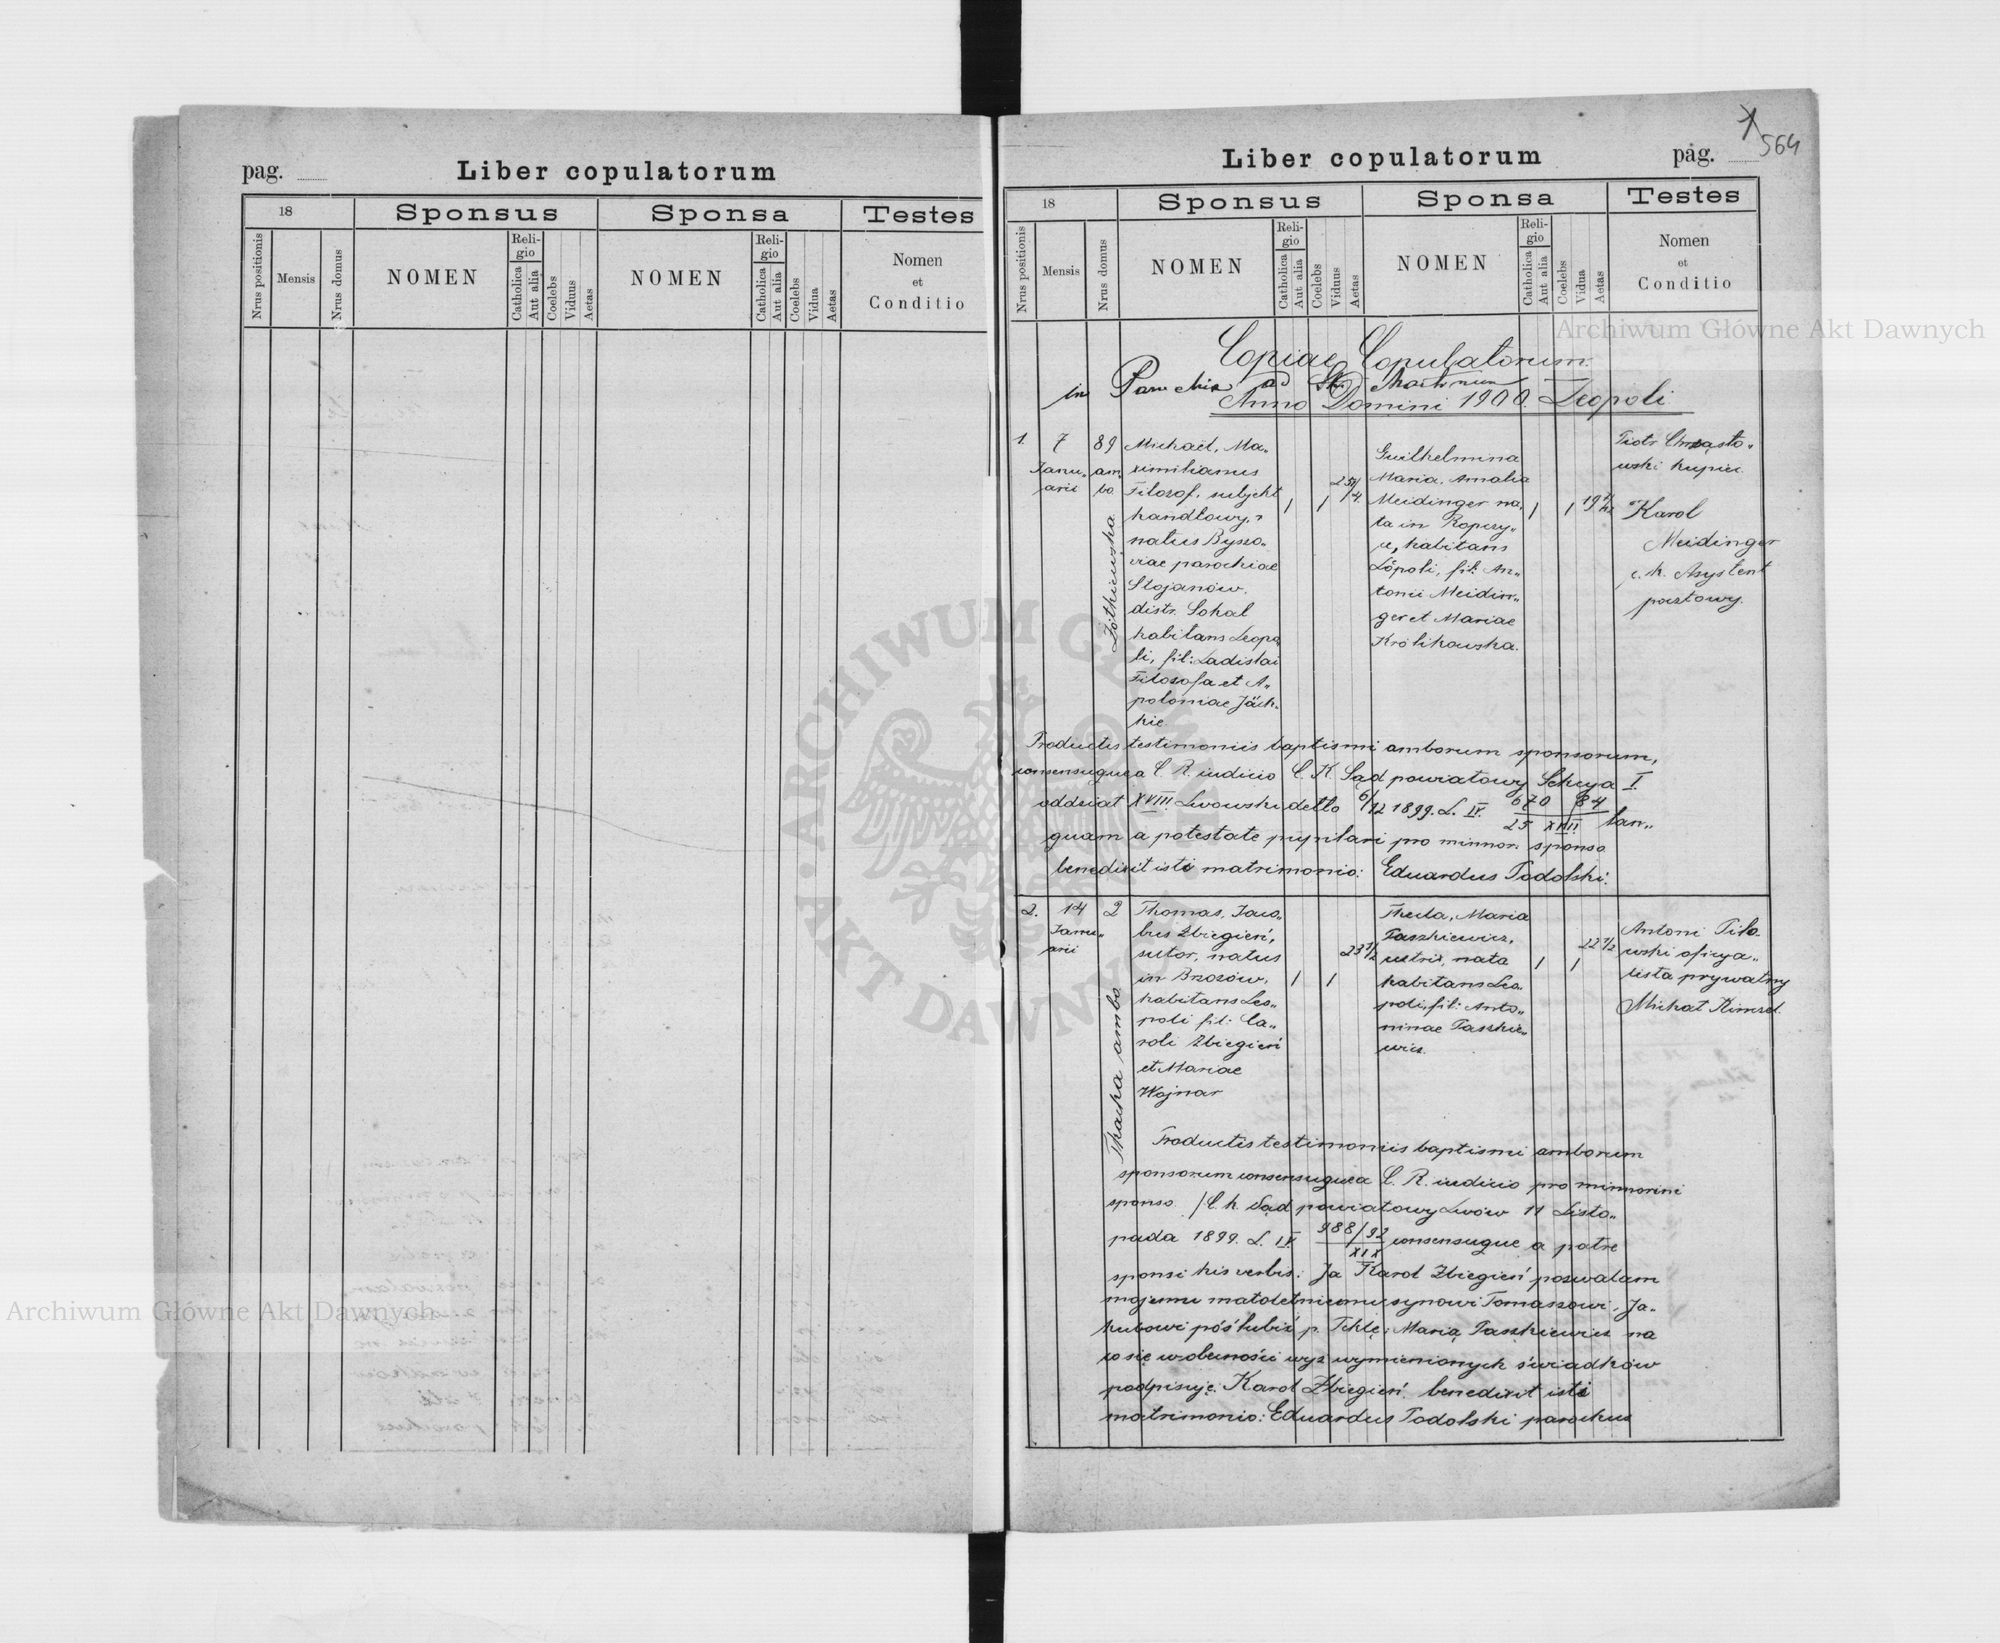 pag.
Liber copulatorum
18
Sponsus
Sponsa
Testes
Nrus positionis
Mensis
Nrus domus
NOMEN
Religio
Catholica
Aut alia
Coelebs
Viduus
Aetas
NOMEN
Religio
Catholica
Aut alia
Coelebs
Vidua
Aetas
Nomen
et
Conditio
Liber copulatorum
pag. 564
18
Sponsus
Sponsa
Testes
Nrus positionis
Mensis
Nrus domus
NOMEN
Religio
Catholica
Aut alia
Coelebs
Viduus
Aetas
NOMEN
Religio
Catholica
Aut alia
Coelebs
Vidua
Aetas
Nomen
et
Conditio
Copiae Copulatorum
in Parochia ad St. Martinum
Anno Domini 1900. Leopoli
1.
7
Janu„
arii
89
am„
bo
Żółkiewska
Michaël, Ma„
ximilianus
Filozof, subjekt
handlowy,
natus Byszo„
viae parochiae
Stojanów.
distr. Sokal
habitans Leopo„
li, fil: Ladislai
Filozofa et A„
poloniae Jäch„
kie
1
1
Guilhelmina
Maria, Amalia
Meidinger na„
ta in Ropczy„
ce, habitans
Lĕopoli, fil: An„
tonii Meidin„
ger et Mariae
Królikowska.
1
1
Piotr Chrząsto„
wski kupiec.
Karol
Meidinger
c. k. Asystent
pocztowy.
Productis testimoniis baptismi amborum sponsorum,
consensuque a C. R. iudicio C. K. Sąd powiatowy Sekcya I
oddział XVIII Lwowski detto 6/12 1899. L. IV. 670 84
25 XVIII tan„
quam a potestate pupilari pro minnor. sponso
benedixit isti matrimonio: Eduardus Podolski.
2.
14
Janu„
arii
2
Tkacka ambo
Thomas, Jaco„
bus Zbiegień,
sutor, natus
in Brzozów,
habitans Leo„
poli fil: Ca„
roli Zbiegień
et Mariae
Wojnar
1
1
23 1/2
Thecla, Maria
Taszkiewicz,
nata
habitans Leo„
poli, fil: Anto„
ninae Taszkie„
wicz.
1
1
22 1/2
Antoni Piło„
wski oficya„
lista prywatny
Michał Kimzel.
Productis testimoniis baptismi amborum
sponsorum consensuque a C. R. iudicio pro minnorini
sponso /C. k. Sąd powiatowy Lwów 11 Listo„
pada 1899. L. IV. 988/92
XIX consensuque a patre
sponsi his verbis: Ja Karol Zbiegień pozwalam
mojemu małoletniemu synowi Tomaszowi, Ja„
kubowi póślubić p. Teklę; Marią Taszkiewicz na
co się w obecności wyż wymienionych świadków
podpisuję. Karol Zbiegień. benedixit isti
matrimonio: Eduardus Podolski parochus
Archiwum Główne Akt Dawnych
Archiwum Główne Akt Dawnych
ARCHIWUM GŁÓWNE AKT DAWNYCH